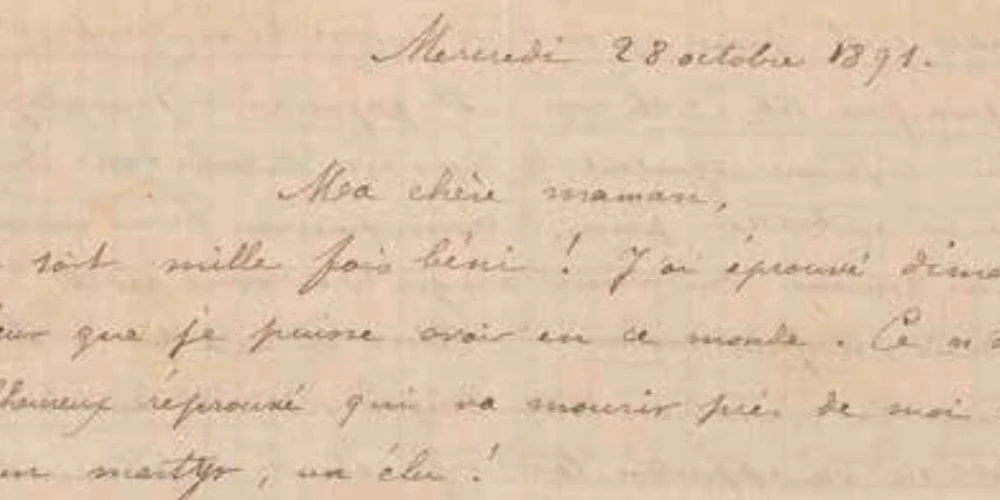 Mercredi 28 octobre 1891.
Ma chère maman,
soit mille fois béni ! J'ai éprouvé dima
eur que je puisse avoir en ce monde. Ce n'
lheureux réprouvé qui va mourir près de moi
un martyr, un élu !